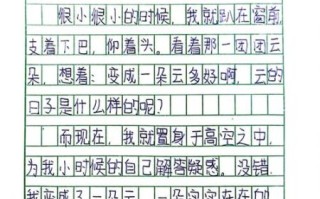 很小很小的时候，我就趴在窗前，
支着下巴，仰着头。看着那一团团云
朵，想着：变成一朵云多好啊，云的
日子是什么样的呢？
而现在，我就置身于高空之中，
为我小时候的自己解答疑惑。没错，
我变成了一朵云，一朵实实在在的